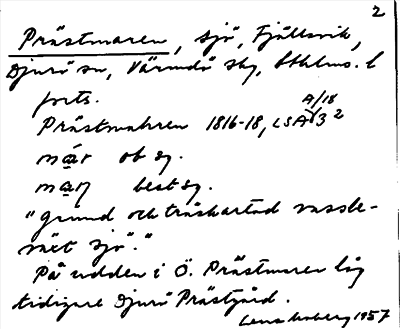 2
Prästmaren, sjö, Fjällsvik,
Djurö sn, Värmdö skg, Sthlms. l
forts.
Prästmahren 1816-18, LSA A/18 32
obsg.
best sg.
"grund och träskartad vassbe-
växt sjö."
På udden i Ö. Prästmaren låg
tidigare Djurö Prästgård.
1957